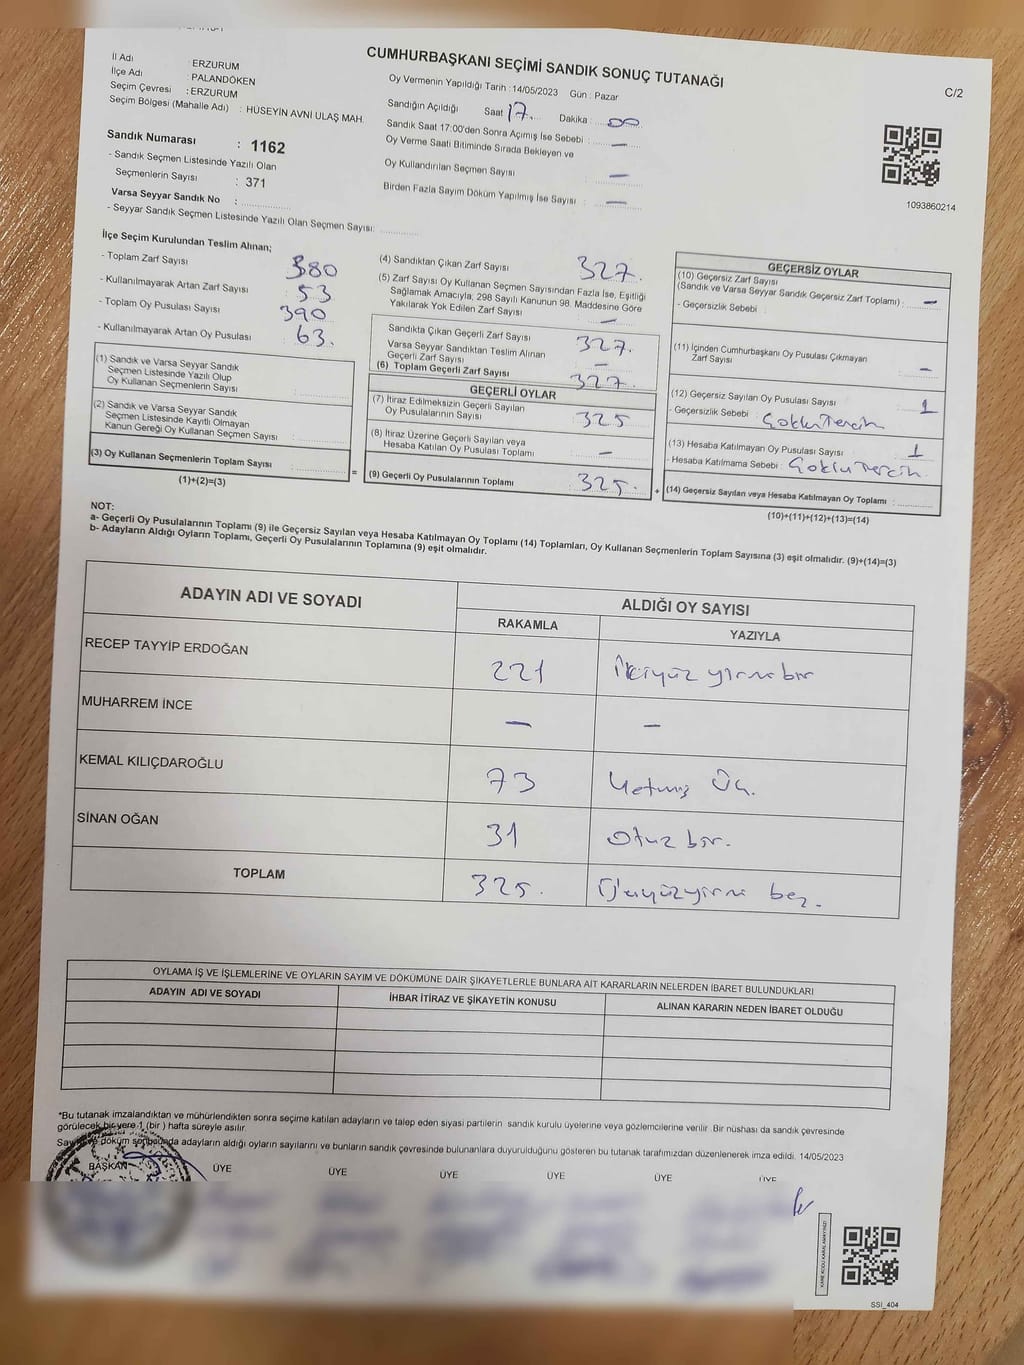 CUMHURBAŞKANI SEÇİMİ SANDIK SONUÇ TUTANAĞI
C/2
İl Adı : ERZURUM
İlçe Adı : PALANDÖKEN
Seçim Çevresi : ERZURUM
Seçim Bölgesi (Mahalle Adı) : HÜSEYİN AVNİ ULAŞ MAH.
Sandık Numarası : 1162
- Sandık Seçmen Listesinde Yazılı Olan
Seçmenlerin Sayısı : 371
Varsa Seyyar Sandık No :
- Seyyar Sandık Seçmen Listesinde Yazılı Olan Seçmen Sayısı:
Oy Vermenin Yapıldığı Tarih : 14/05/2023 Gün : Pazar
Sandığın Açıldığı Saat 17. Dakika : 00
Sandık Saat 17:00'den Sonra Açımış İse Sebebi : —
Oy Verme Saati Bitiminde Sırada Bekleyen ve
Oy Kullandırılan Seçmen Sayısı —
Birden Fazla Sayım Döküm Yapılmış İse Sayısı : —
1093860214
İlçe Seçim Kurulundan Teslim Alınan;
- Toplam Zarf Sayısı 380
- Kullanılmayarak Artan Zarf Sayısı 53
- Toplam Oy Pusulası Sayısı 390
- Kullanılmayarak Artan Oy Pusulası 63.
(1) Sandık ve Varsa Seyyar Sandık
Seçmen Listesinde Yazılı Olup
Oy Kullanan Seçmenlerin Sayısı
(2) Sandık ve Varsa Seyyar Sandık
Seçmen Listesinde Kayıtlı Olmayan
Kanun Gereği Oy Kullanan Seçmen Sayısı :
(3) Oy Kullanan Seçmenlerin Toplam Sayısı :
(1)+(2)=(3)
=
(4) Sandıktan Çıkan Zarf Sayısı 327.
(5) Zarf Sayısı Oy Kullanan Seçmen Sayısından Fazla İse, Eşitliği
Sağlamak Amacıyla; 298 Sayılı Kanunun 98. Maddesine Göre
Yakılarak Yok Edilen Zarf Sayısı —
Sandıkta Çıkan Geçerli Zarf Sayısı 327.
Varsa Seyyar Sandıktan Teslim Alınan
Geçerli Zarf Sayısı —
(6) Toplam Geçerli Zarf Sayısı 327.
GEÇERLİ OYLAR
(7) İtiraz Edilmeksizin Geçerli Sayılan
Oy Pusulalarının Sayısı 325
(8) İtiraz Üzerine Geçerli Sayılan veya
Hesaba Katılan Oy Pusulası Toplamı —
(9) Geçerli Oy Pusulalarının Toplamı 325.
+
GEÇERSİZ OYLAR
(10) Geçersiz Zarf Sayısı
(Sandık ve Varsa Seyyar Sandık Geçersiz Zarf Toplamı) : —
- Geçersizlik Sebebi :
(11) İçinden Cumhurbaşkanı Oy Pusulası Çıkmayan
Zarf Sayısı —
(12) Geçersiz Sayılan Oy Pusulası Sayısı 1
- Geçersizlik Sebebi : Çoklu Tercih
(13) Hesaba Katılmayan Oy Pusulası Sayısı 1
- Hesaba Katılmama Sebebi : Çoklu Tercih.
(14) Geçersiz Sayılan veya Hesaba Katılmayan Oy Toplamı :
(10)+(11)+(12)+(13)=(14)
NOT:
a- Geçerli Oy Pusulalarının Toplamı (9) ile Geçersiz Sayılan veya Hesaba Katılmayan Oy Toplamı (14) Toplamları, Oy Kullanan Seçmenlerin Toplam Sayısına (3) eşit olmalıdır. (9)+(14)=(3)
b- Adayların Aldığı Oyların Toplamı, Geçerli Oy Pusulalarının Toplamına (9) eşit olmalıdır.
ADAYIN ADI VE SOYADI
ALDIĞI OY SAYISI
RAKAMLA
YAZIYLA
RECEP TAYYİP ERDOĞAN 221 İkiyüz yirmi bir
MUHARREM İNCE — —
KEMAL KILIÇDAROĞLU 73 Yetmiş Üç.
SİNAN OĞAN 31 Otuz bir.
TOPLAM 325. Üçyüzyirmi beş.
OYLAMA İŞ VE İŞLEMLERİNE VE OYLARIN SAYIM VE DÖKÜMÜNE DAİR ŞİKAYETLERLE BUNLARA AİT KARARLARIN NELERDEN İBARET BULUNDUKLARI
ADAYIN ADI VE SOYADI
İHBAR İTİRAZ VE ŞİKAYETİN KONUSU
ALINAN KARARIN NEDEN İBARET OLDUĞU
*Bu tutanak imzalandıktan ve mühürlendikten sonra seçime katılan adayların ve talep eden siyasi partilerin sandık kurulu üyelerine veya gözlemcilerine verilir. Bir nüshası da sandık çevresinde
görülecek bir yere 1 (bir ) hafta süreyle asılır.
Sayım ve döküm sonucunda adayların aldığı oyların sayılarını ve bunların sandık çevresinde bulunanlara duyurulduğunu gösteren bu tutanak tarafımızdan düzenlenerek imza edildi. 14/05/2023
BAŞKAN ÜYE ÜYE ÜYE ÜYE ÜYE ÜYE
SSI_404